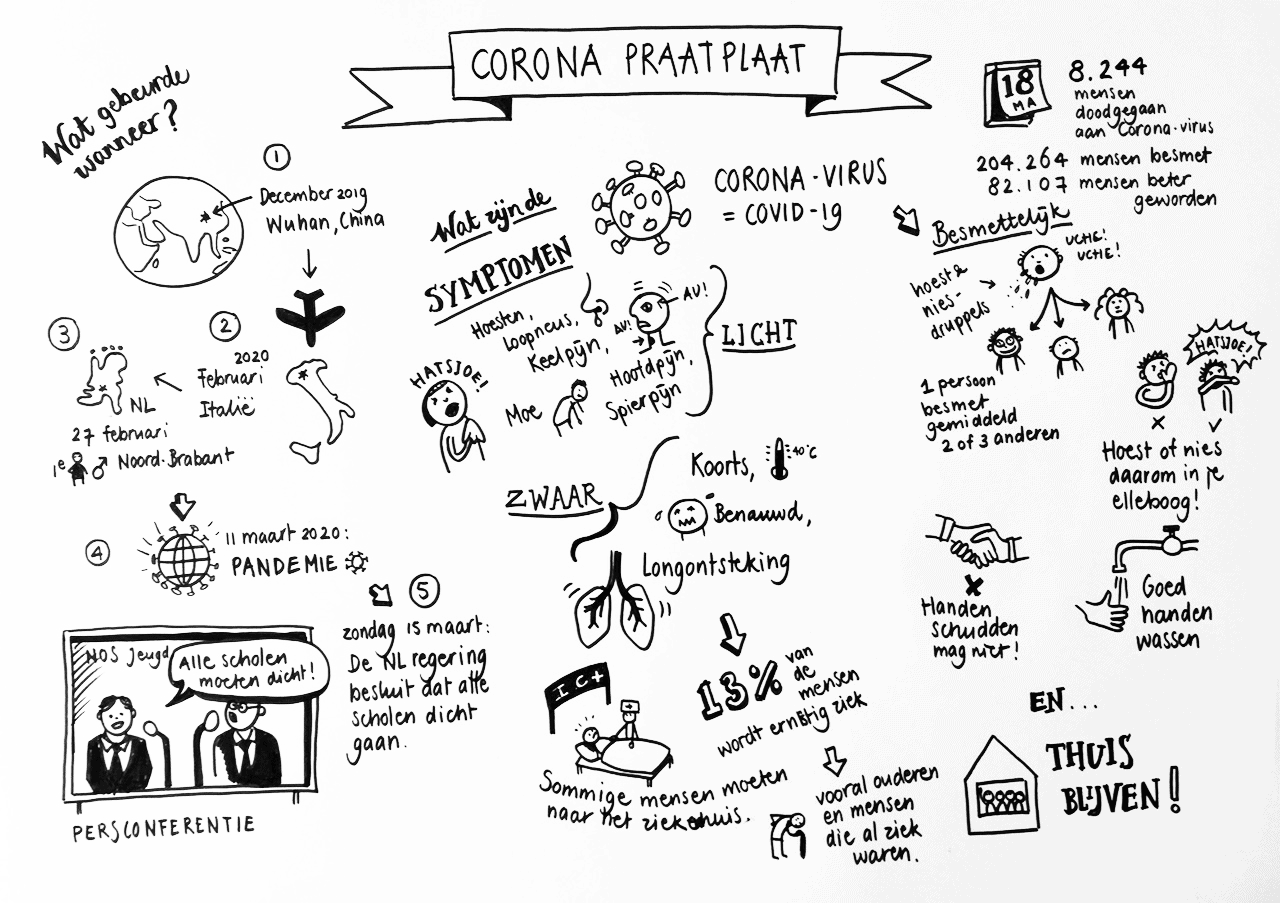 CORONA PRAATPLAAT
Wat gebeurde
wanneer?
1
December 2019
Wuhan, China
2
2020
Februari
Italië
3
NL
27 februari
1e
Noord-Brabant
4
11 maart 2020:
PANDEMIE
5
zondag 15 maart:
De NL regering
besluit dat alle
scholen dicht
gaan.
NOS Jeugd
Alle scholen
moeten dicht!
PERSCONFERENTIE
CORONA-VIRUS
= COVID-19
Wat zijn de
SYMPTOMEN
Hoesten,
Loopneus,
Keelpijn,
AU!
AU!
Hoofdpijn,
Spierpijn
Moe
HATSJOE!
LICHT
ZWAAR
Koorts,
40°C
Benauwd,
Longontsteking
IC+
Sommige mensen moeten
naar het ziekenhuis.
13% van
de
mensen
wordt ernstig ziek
vooral ouderen
en mensen
die al ziek
waren.
18
MA
8.244
mensen
doodgegaan
aan Corona-virus
204.264 mensen besmet
82.107 mensen beter
geworden
Besmettelijk
UCHE!
UCHE!
hoest &
nies-
druppels
1 persoon
besmet
gemiddeld
2 of 3 anderen
HATSJOE!
Hoest of nies
daarom in je
elleboog!
Handen
schudden
mag niet!
Goed
handen
wassen
EN...
THUIS
BLIJVEN!